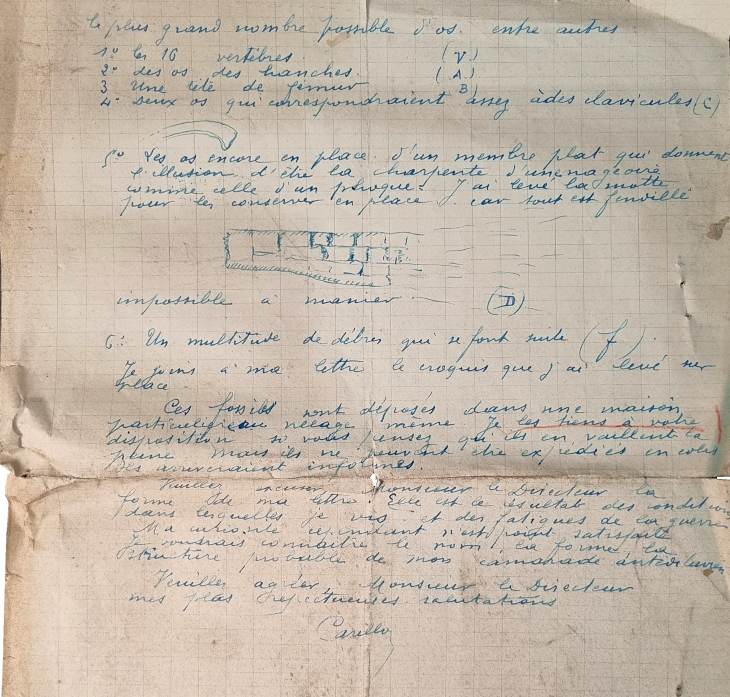 le plus grand nombre possible d'os. entre autres :
1° les 16 vertèbres. (V.)
2° des os des hanches. (A.)
3 Une tête de fémur B)
4° Deux os qui correspondraient assez à des clavicules (C)
5° Les os encore en place. d'un membre plat qui donnent
l'illusion d'être la charpente d'une nageoire
comme celle d'un phoque. J'ai levé la motte
pour les conserver en place. car tout est feuillé
impossible à manier. (D)
6: Un multitude de débris qui se font suite (f).
Je joins à ma lettre le croquis que j'ai levé sur
place.
Ces fossiles sont déposés dans une maison
particulière au village même. Je les tiens à votre
disposition si vous pensez qu'ils en vaillent la
peine mais ils ne peuvent être expédiés en colis
ils arriveraient informes.
Veuillez excuser Monsieur le Directeur la
forme de ma lettre. Elle est le résultat des conditions
dans lesquelles je vis et des fatigues de la guerre
Ma curiosité cependant n'est point satisfaite
Je voudrais connaître le nom, la forme la
structure probable de mon camarade antédiluvien
Veuillez agréer, Monsieur le Directeur
mes plus respectueuses salutations